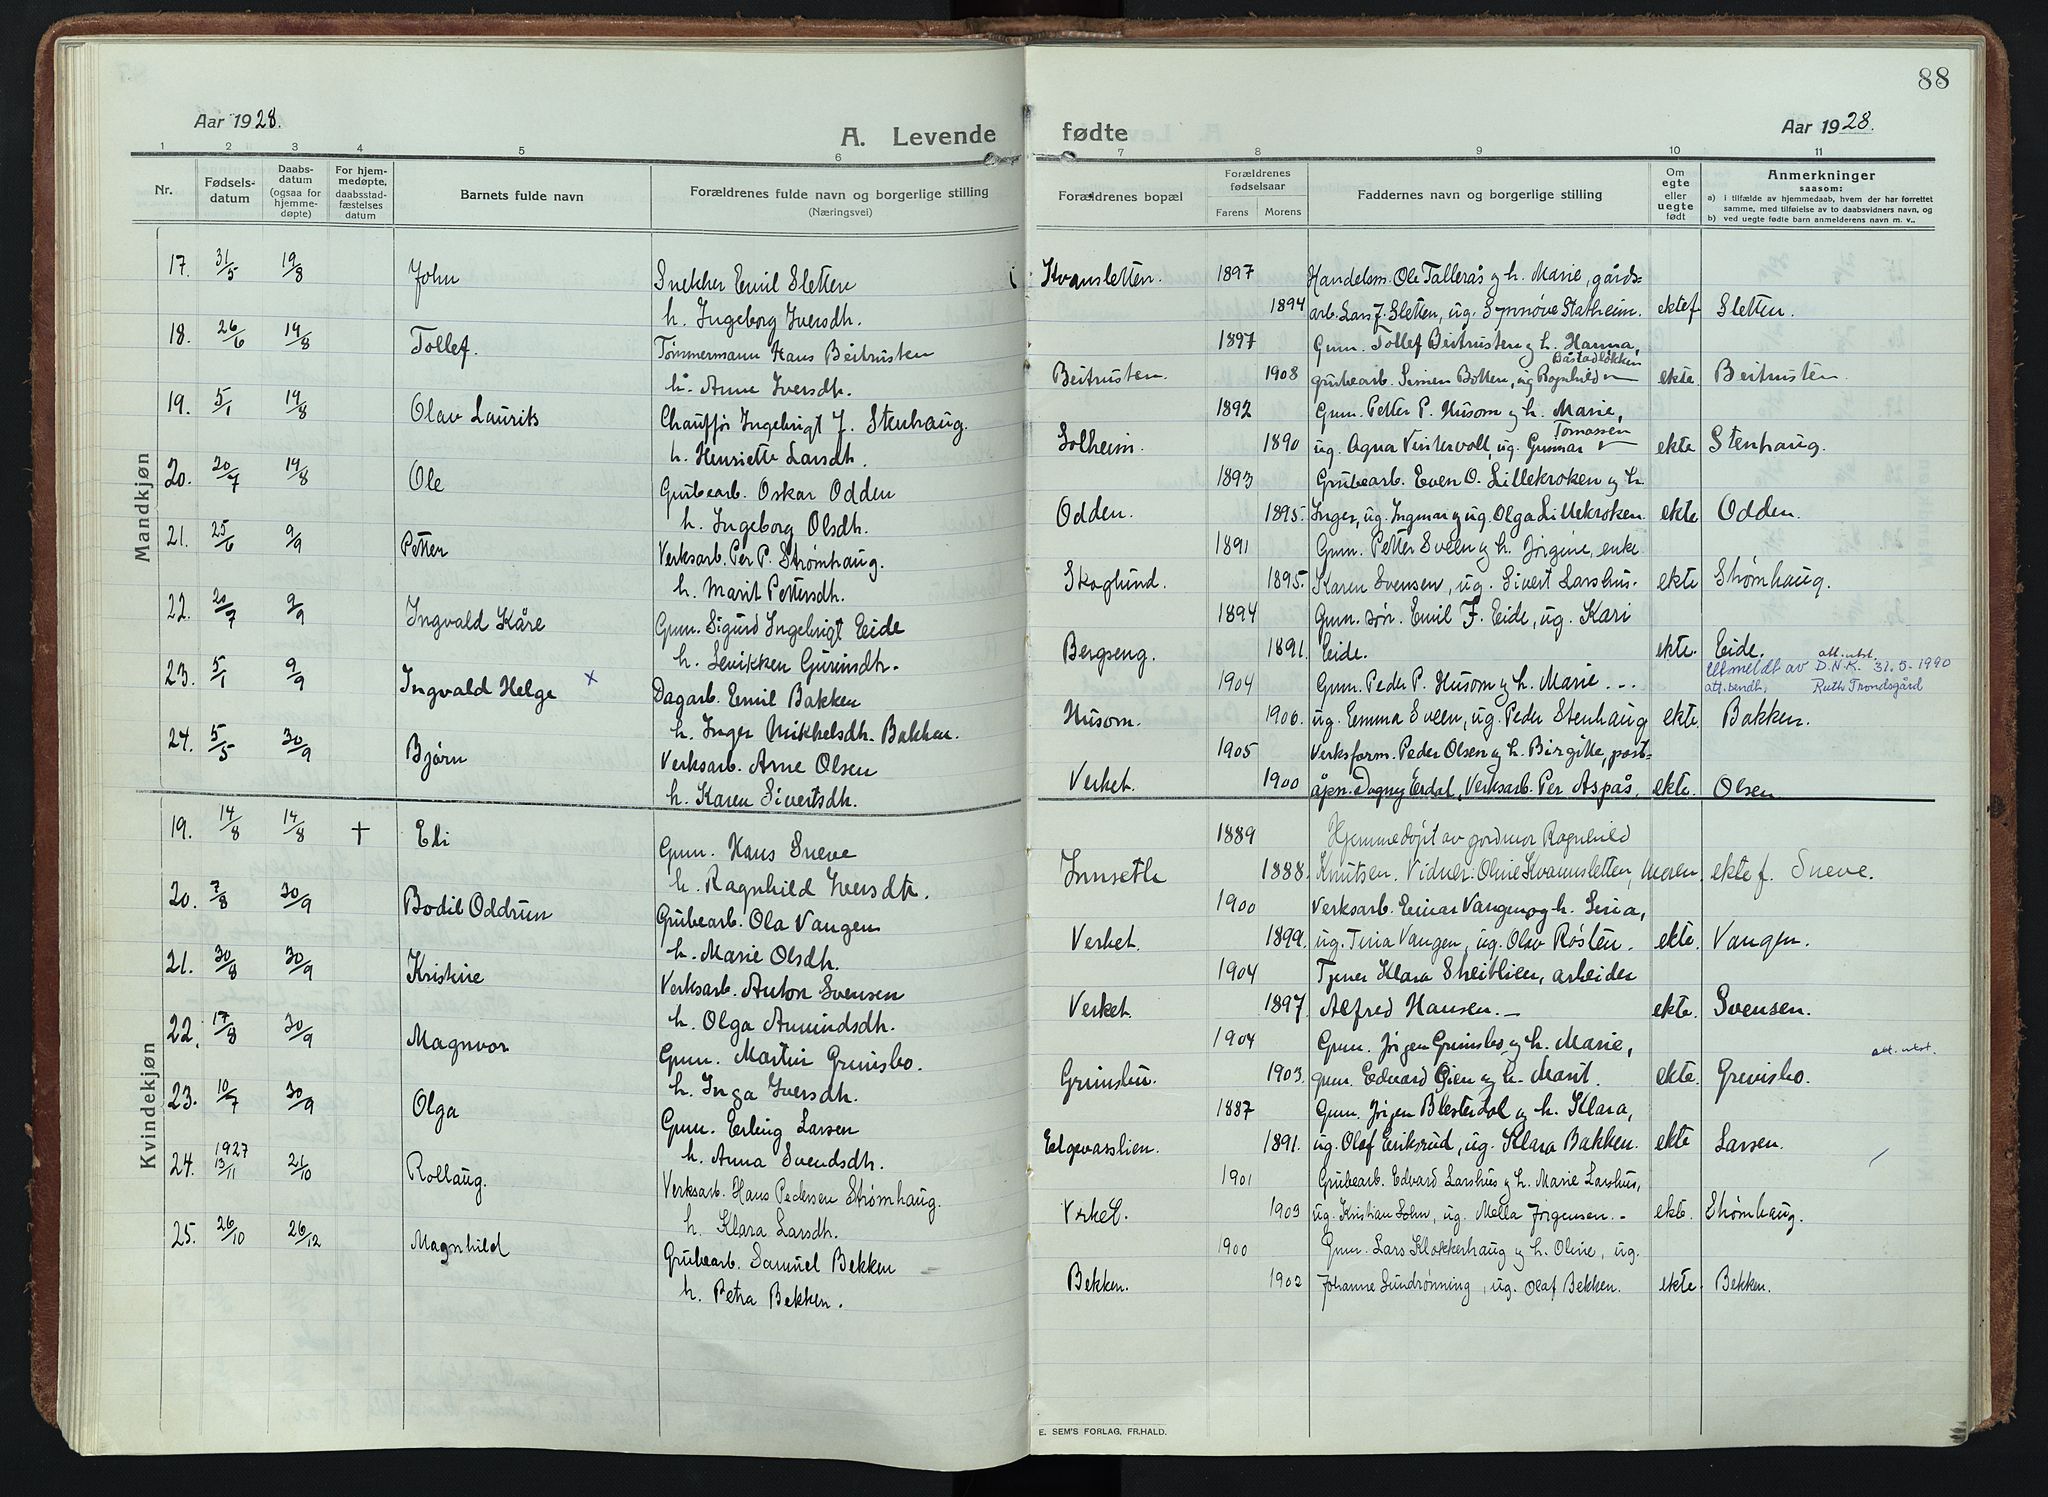 88
Aar 1928.
A. Levende
fødte
Aar 1928.
1 2 3 4 5 6 7 8 9 10 11
Nr.
Fødsels-
datum
Daabs-
datum
(ogsaa for
hjemme-
døpte)
For hjem-
medøpte,
daabsstad-
fæstelses
datum
Barnets fulde navn
Forældrenes fulde navn og borgerlige stilling
(Næringsvei)
Forældrenes bopæl
Forældrenes
fødselsaar
Farens
Morens
Faddernes navn og borgerlige stilling
Om
egte
eller
uegte
født
Anmerkninger
saasom:
a) i tilfælde av hjemmedaab, hvem der har forrettet
samme, med tilføielse av to daabsvidners navn, og
b) ved uegte fødte barn anmelderens navn m. v.,
Mandkjøn
17. 31/5 19/8 John Snekker Emil Sletten Kvansletten. 1897 Handelsm. Ole Tallerås og h. Marie, gårds-
h. Ingeborg Iversdh. 1894 arb. Lars J. Sletten, ug. Synnøve Statheim. ektef Sletten.
18. 26/6 19/8 Tollef. Tømmermann Hans Beitrusten 1897 Gmn. Tollef Beitrusten og h. Hanna,
Båstadløkken
h. Anne Iversdh. Beitrusten. 1908 grubearb. Simen Botten, ug Ragnhild ekte. Beitrusten.
19. 5/1 19/8 Olav Laurits Chauffør Ingebrigt J. Stenhaug. 1892 Gmn. Petter P. Husom og h. Marie,
Tomassen
h. Henriette Larsdh. Solheim. 1890 ug. Agna Vintervoll, ug. Gunnar ekte Stenhaug.
20. 20/7 19/8 Ole Grubearb. Oskar Odden 1893 Grubearb. Even O. Lillekroken og h
h. Ingeborg Olsdh. Odden. 1895. Inger, ug. Ingmar og ug. Olga Lillekroken. ekte Odden.
21. 25/6 9/9 Petter Verksarb. Per P. Strømhaug. 1891 Gmn. Petter Sveen og h. Jørgine, enke
h. Marit Pettersdh. Skoglund. 1895. Karen Svensen, ug. Sivert Larshus. ekte Strømhaug.
22. 20/7 9/9 Ingvald Kåre Gmn. Sigurd Ingebrigt Eide 1894 Gmn. sør. Emil F. Eide, ug. Kari
h. Gurinsdh. Bergseng. 1891. Eide. ekte. Eide.
att. utst.
Utmeldt av D.N.K. 31.5-1990
att. sendt, Ruth Trondsgård
23. 5/1 9/9 Ingvald Helge x Dagarb. Emil Bakken 1904 Gmn. Peder P. Husom og h. Marie
h. Inger Mikkelsdh. Bakken. Husom. 1906. ug. Emma Sveen, ug. Peder Stenhaug ekte. Bakken.
24. 5/5 30/9 Bjørn Verksarb. Arne Olsen 1905 Verksform. Peder Olsen og h. Birgitte, post-
h. Karen Sivertsdh. Verket. 1900 åpn. Dagny Erdal, Verksarb. Per Aspås. ekte. Olsen
Kvindekjøn
19. 14/8 14/8 † Eli Gmn. Hans Sneve 1889 Hjemmedøpt av jordmor Ragnhild
h. Ragnhild Iversdh. Innseth 1888. Knutsen. Vidner: Oline Kvannsletten, Moren. ekte f. Sneve.
20. 7/8 30/9 Bodil Oddrun Grubearb. Ola Vangen 1900 Verksarb. Einar Vangen og h. Lina,
h. Marie Olsdh. Verket. 1899. ug. Tina Vangen, ug. Olav Røsten. ekte. Vangen.
21. 30/8 30/9 Kristine Verksarb. Anton Svensen 1904 Tjener Klara Skeiblien, arbeider
h. Olga Amundsdh. Verket. 1897. Alfred Hansen. ekte. Svensen.
22. 17/8 30/9 Magnvor Gmn. Martin Grimsbo. 1904 Gmn. Jørgen Grimsbo, og h. Marie,
h. Inga Iversdh. Grimsbu. 1903. gmn. Edvard Øien og h. Marit. ekte. Grimsbo. att. utst.
23. 10/7 30/9 Olga Gmn. Erling Larsen 1887 Gmn. Jørgen Blesterdal og h. Klara,
h. Anna Svendsdh. Elgevasslien. 1891. ug. Olaf Eriksrud, ug. Klara Bakken. ekte Larsen.
24. 1927 13/11 21/10 Rollaug. Verksarb. Hans Pedersen Strømhaug. 1901 Grubearb. Edvard Larshus og h. Marie Larshus,
h. Klara Larsdh. Verket. 1903 ug. Kristian Sohn, ug. Mella Jørgensen. ekte. Strømhaug.
25. 26/10 26/12 Magnhild Grubearb. Samuel Bekken 1900 Gmn. Lars Klokkerhaug og h. Oline, ug.
h. Petra Bekken. Bekken. 1902 Johanne Sundrønning, ug. Olaf Bekken. ekte. Bekken.
E. SEM'S FORLAG, FR.HALD.